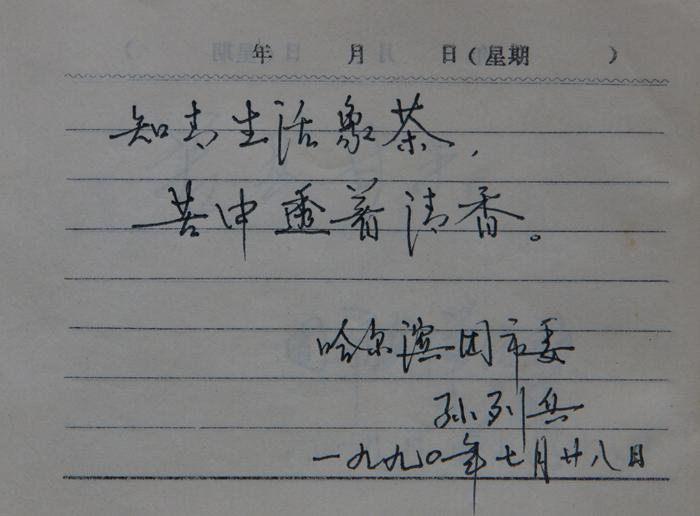 年 月 日(星期 )
知青生活象茶,
苦中透着清香。
哈尔滨团市委
孙列兵
一九九〇年七月廿八日